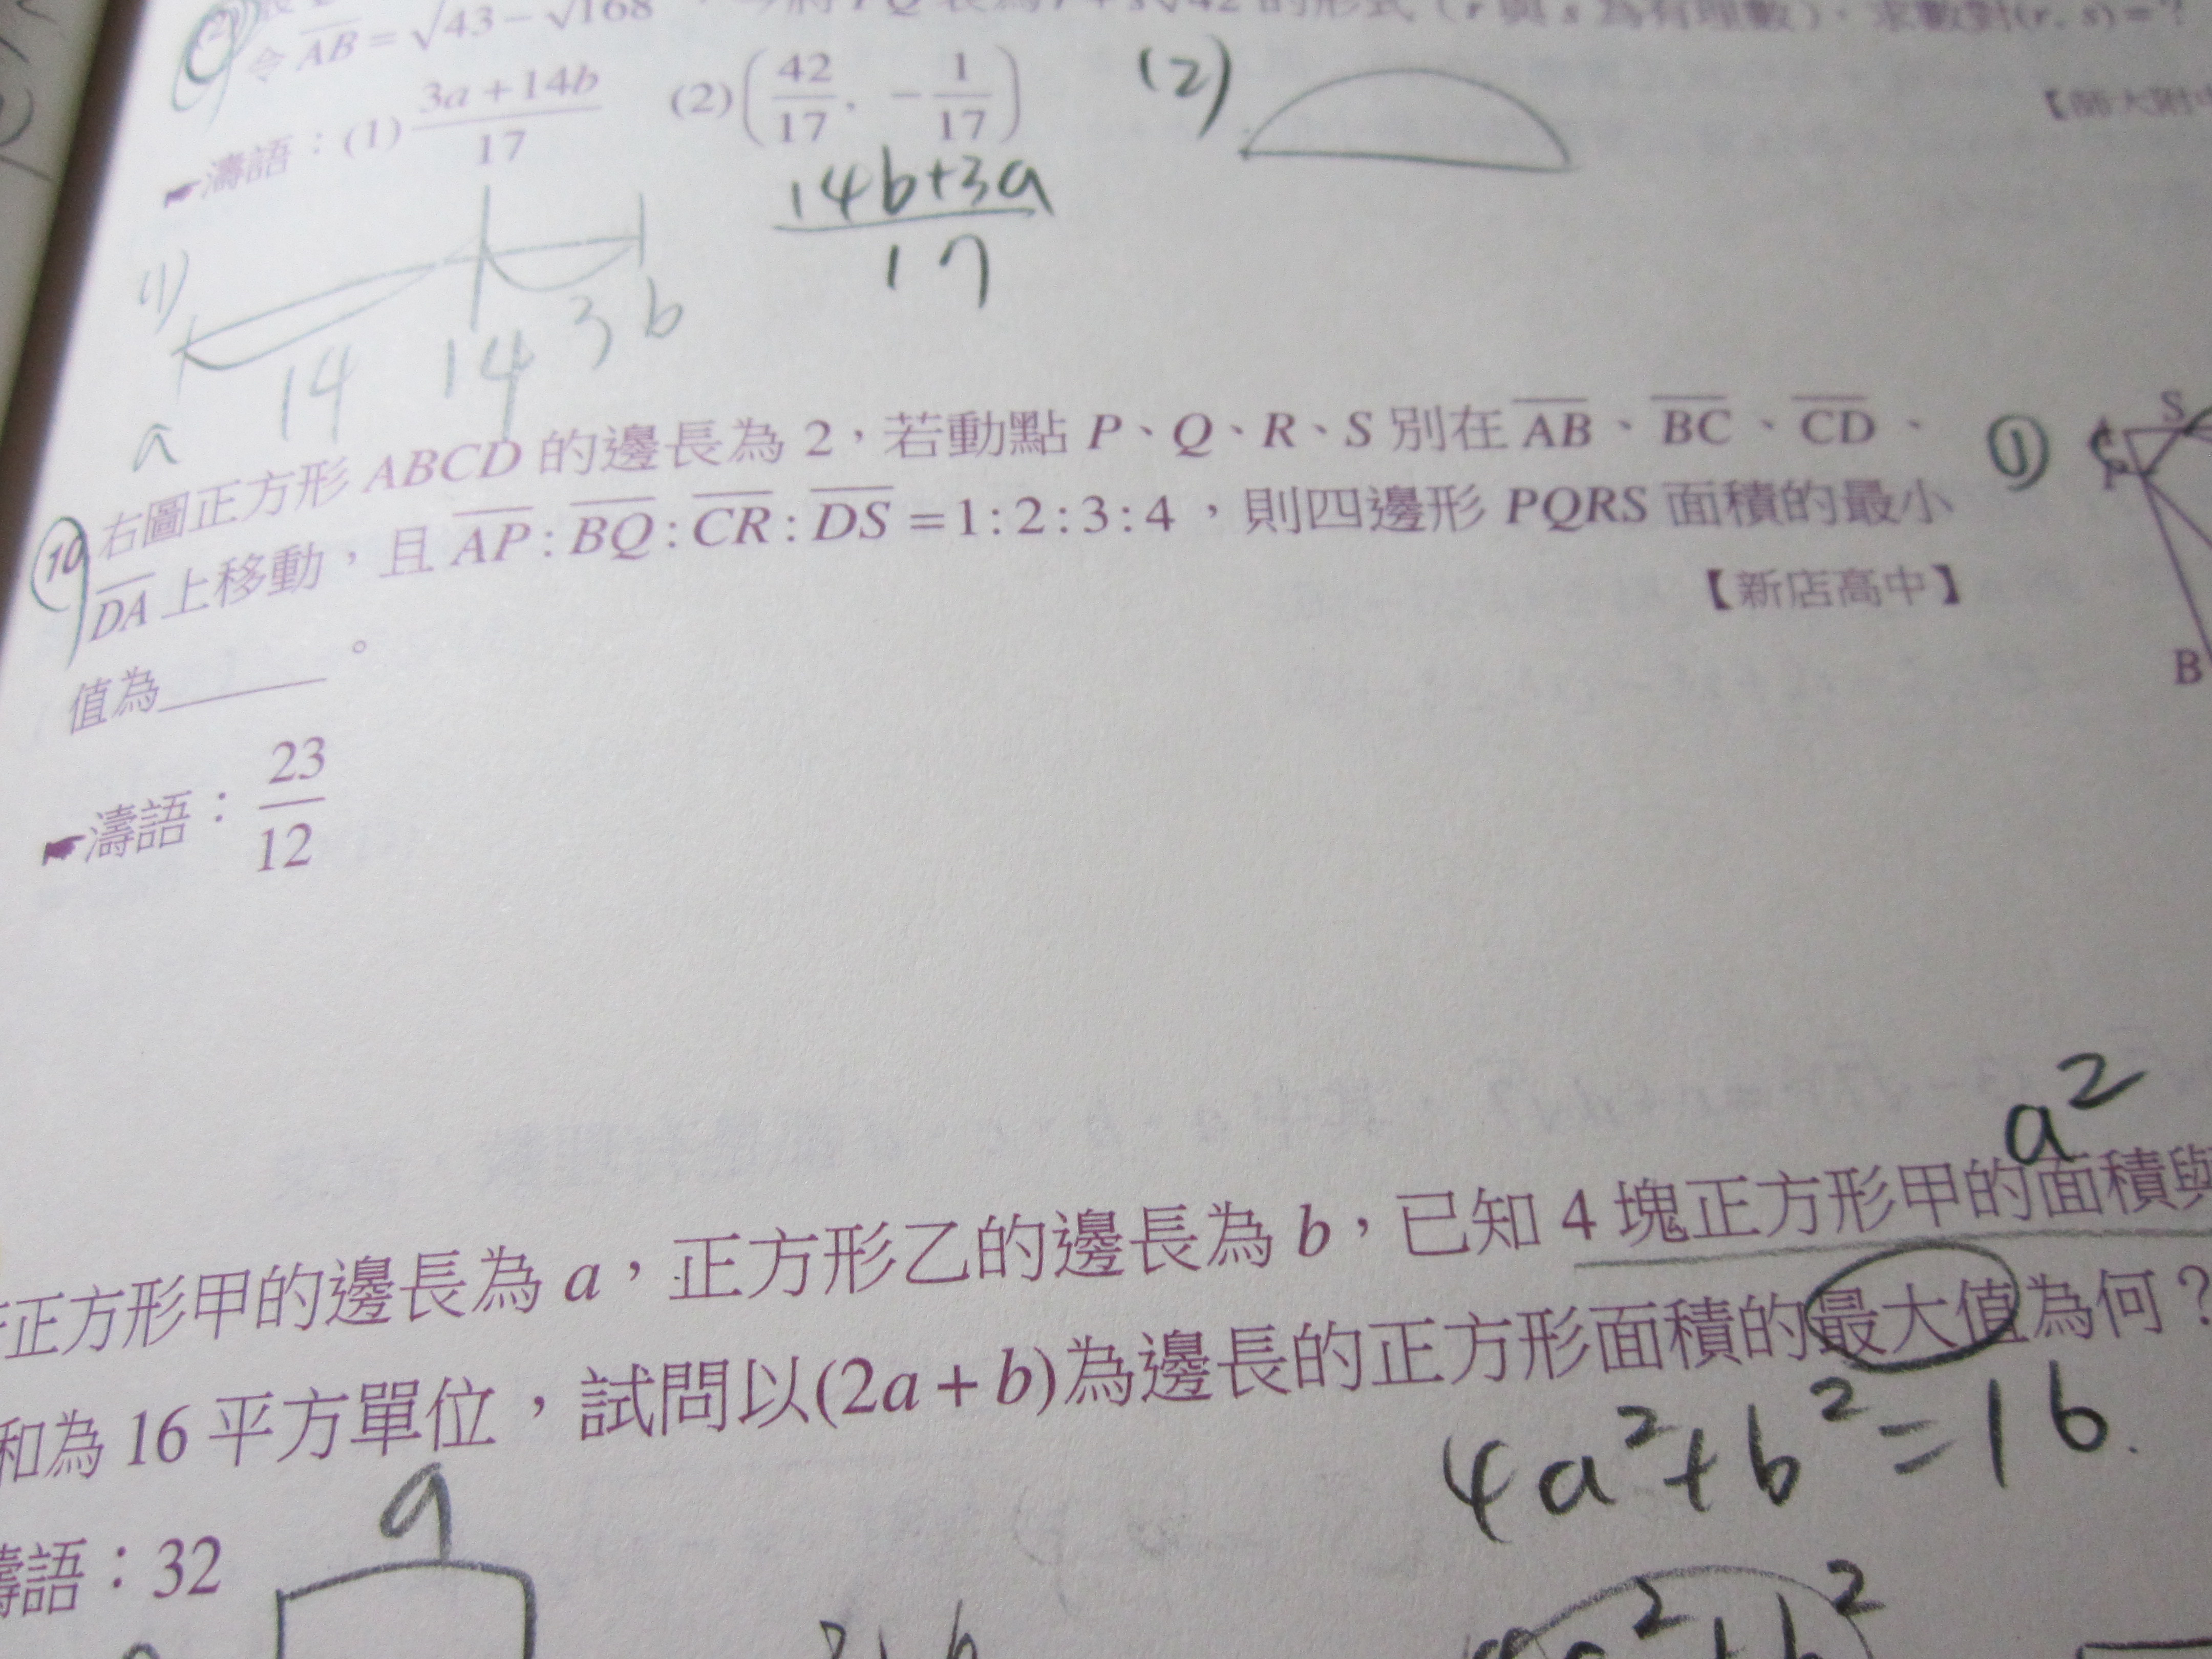 令 AB = √43 − √168 的形式(r 與 s 為有理數),求數對(r, s) = ?
☛濤語:(1) (3a+14b)/17 (2) (42/17, −1/17)
(2)
【師大附中
14b+3a
17
(1)
14 14 3 b
a
10 右圖正方形 ABCD 的邊長為 2,若動點 P、Q、R、S 別在 AB、BC、CD、
DA 上移動,且 AP : BQ : CR : DS = 1 : 2 : 3 : 4,則四邊形 PQRS 面積的最小
值為______。
【新店高中】
①
S
B
☛濤語:23/12
a²
正方形甲的邊長為 a,正方形乙的邊長為 b,已知 4 塊正方形甲的面積與
和為 16 平方單位,試問以(2a + b)為邊長的正方形面積的最大值為何?
4a²+b²=16.
濤語:32
a